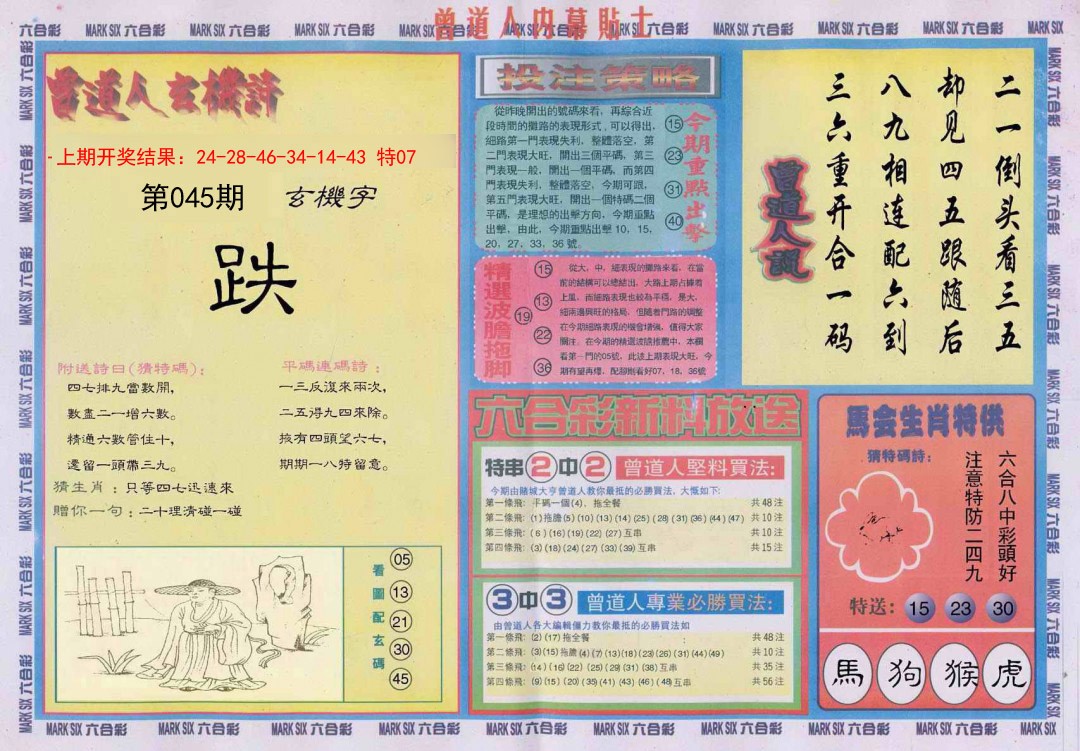 曾道人内幕貼士
MARK SIX 六合彩
曾道人玄機詩
上期开奖结果：24-28-46-34-14-43 特07
第045期 玄機字
跌
附送詩曰(猜特碼)：
四七排九當數開，
數盡二一增六數。
精通六數管住十，
還留一頭帶三九。
平碼連碼詩：
一三反復來兩次，
二五得九四來除。
按有四頭望六七，
期期一八特留意。
猜生肖：只等四七迅速來
贈你一句：二十理清碰一碰
看圖配玄碼
05
13
21
30
45
投注策略
從昨晚開出的號碼來看，再綜合近
段時間的攤路的表現形式，可以得出，
細路第一門表現失利，整體落空，第
二門表現大旺，開出三個平碼，第三
門表現一般，開出一個平碼，而第四
門表現失利，整體落空，今期可跟，
第五門表現大旺，開出一個特碼二個
平碼，是理想的出擊方向，今期重點
出擊，由此，今期重點出擊10，15，
20，27，33，36號。
今期重點出擊
15
23
31
40
精選波膽拖脚
15
13
19
22
36
從大，中，細表現的攤路來看，在當
前的結構可以總結出，大路上期占據着
上風，而細路表現也較為平穩，是大，
細兩邊興旺的格局，但隨着門路的調整
在今期細路表現的機會增強，值得大家
關注。在今期的精選波膽推薦中，本欄
看第一門的05號，此波上期表現大旺，今
期有望再爆，配腳則看好07，18，36號
曾道人説
二一倒头看三五
却见四五跟随后
八九相连配六到
三六重开合一码
六合彩新料放送
特串2中2 曾道人堅料買法:
今期由賭城大亨曾道人教你最抵的必勝買法，大慨如下:
第一條飛: 平碼一個(4)，拖全餐 共48注
第二條飛: (1)拖膽(5)(10)(13)(14)(25)(28)(31)(36)(44)(47) 共10注
第三條飛: (6)(16)(19)(22)(27)互串 共10注
第四條飛: (3)(18)(24)(27)(33)(39)互串 共15注
3中3 曾道人專業必勝買法:
由曾道人各大編輯傾力教你最抵的必勝買法如
第一條飛: (2)(17)拖全餐 共48注
第二條飛: (3)(15)拖膽(4)(7)(13)(18)(23)(26)(31)(44)(49) 共10注
第三條飛: (14)(16)(22)(25)(29)(31)(38)互串 共35注
第四條飛: (9)(15)(20)(35)(41)(43)(46)(48)互串 共56注
馬会生肖特供
猜特碼詩:
六合八中彩頭好
注意特防二四九
特送: 15 23 30
馬 狗 猴 虎